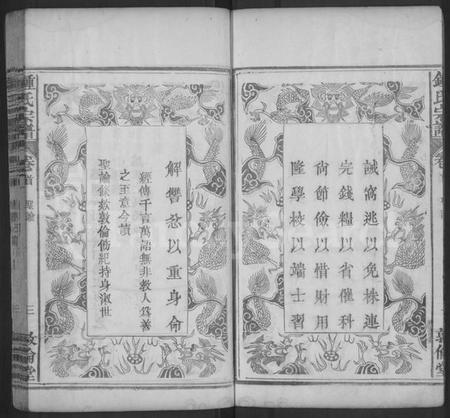 鍾氏宗譜
誡窩逃以免株連
完錢糧以省催科
尚節儉以惜財用
隆學校以端士習
敦倫堂
鍾氏宗譜
卷首
聖諭
解讐忿以重身命
經傳千言萬語無非教人為善
之至意今讀
聖諭條款敦倫飭紀持身淑世
三
敦倫堂